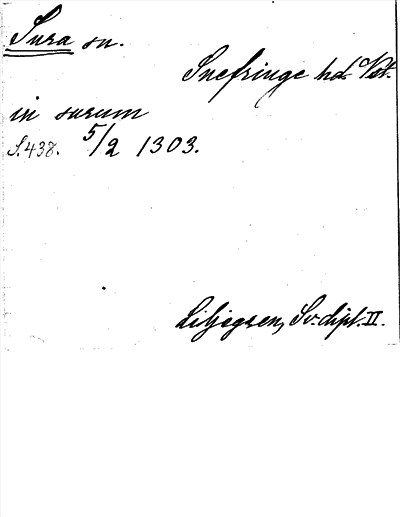 Sura sn.
Snefringe hd. Vst.
in surum
S.438. 5/2 1303.
Liljegren, Sv. dipl. II.